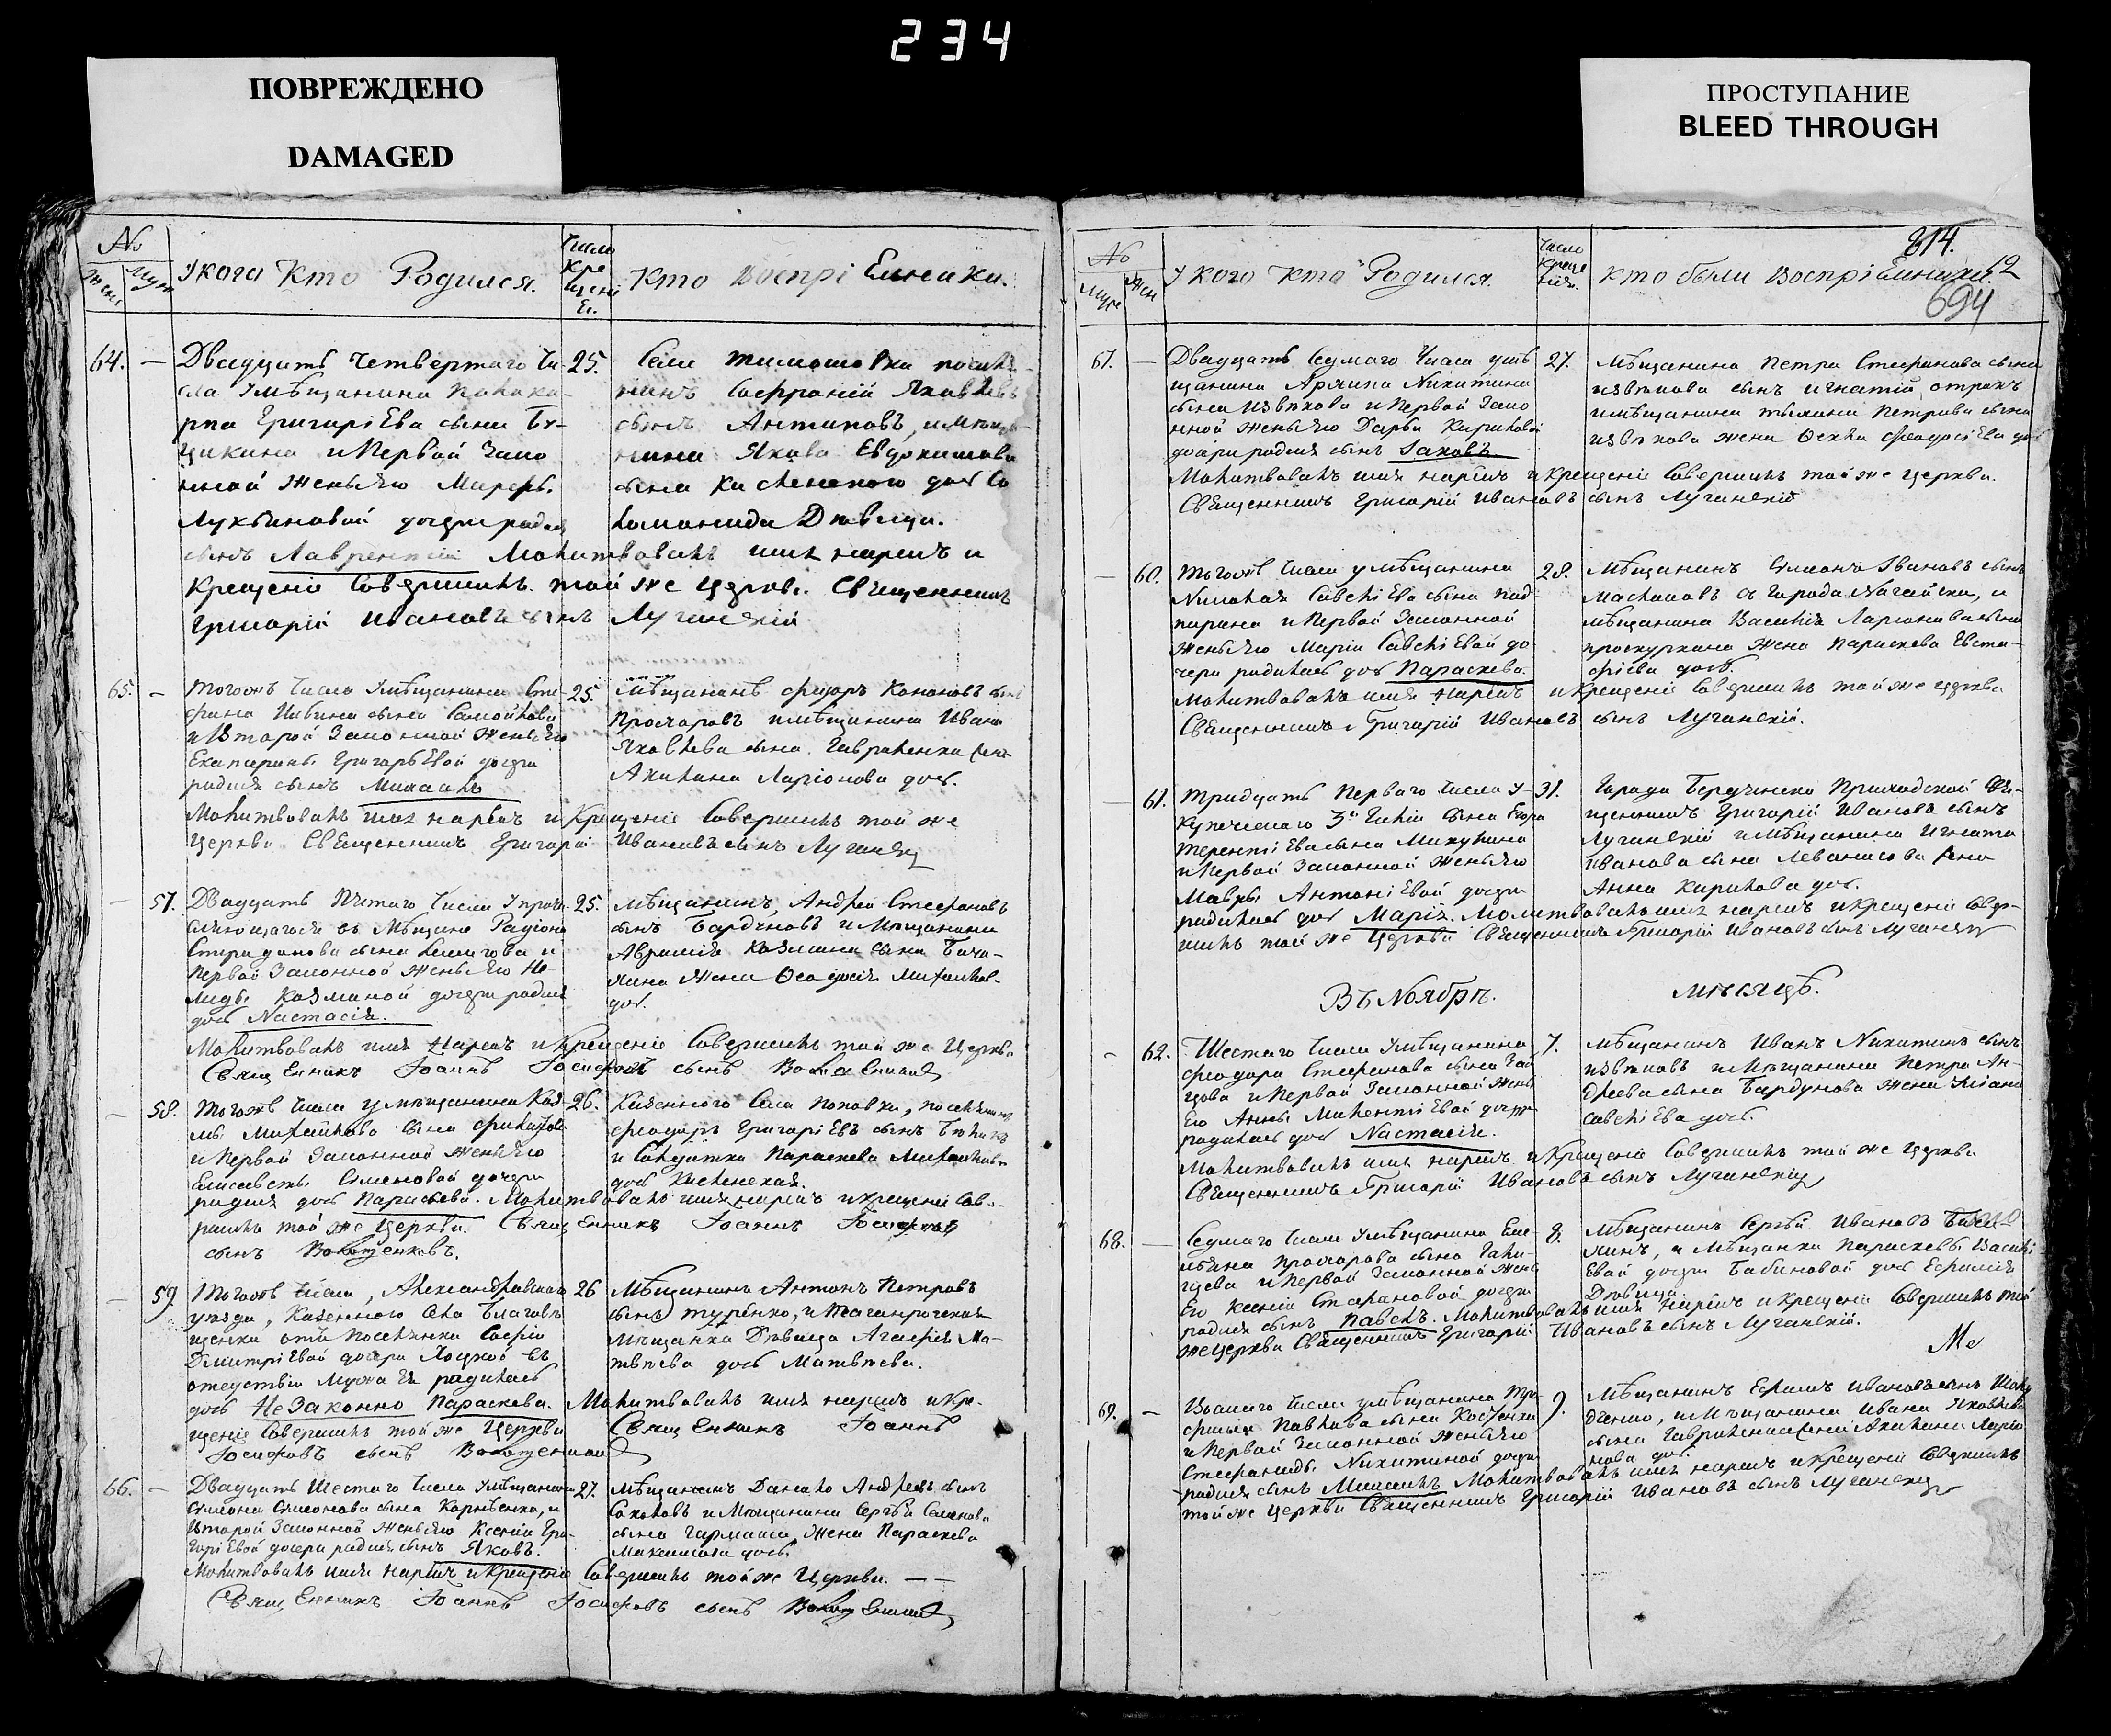 234
ПОВРЕЖДЕНО
DAMAGED
ПРОСТУПАНИЕ
BLEED THROUGH
№
Жени Муж
У кого Кто Родился.
Число Крещені Е.
Кто Воспрі Емники.
64. — Двадцать Четвертаго Чи-
сла У Мѣщанина
рпа ГригоріЕва сына
и Первой Зако
нной Жены Его
Лукьяновой дочери родил
сынъ Лаврентій Молитвовалъ имя нарекъ и
Крещеніе Совершилъ той же Церкви. Священникъ
Григорій Ивановъ сынъ Луганскій
25. Села Тимошовки
Софроній Яковлевъ
сынъ Антиповъ,
Якова Евдокимова
сына дочь Со
ломонида Дѣвица.
65. — Тогожъ Числа У Мѣщанина Сте-
фана сына Самойлова
и Второй Законной Жены Его
Екатерины ГригорьЕвой дочери
родился сынъ Михаилъ
Молитвовалъ имя нарекъ и Крещеніе Совершилъ той же
Церкви СвЕщенникъ Григорій Ивановъ сынъ Луганскій
25. Мѣщанинъ Федоръ Канановъ сынъ
Прохоровъ и мѣщанина Ивана
Яковлева сына Гавриленка Жена
Акилина Ларіонова дочь.
— 57. Двадцать Пятаго Числа У
въ Мѣщане Радіона
Спиридонова сына и
Первой Законной Жены Его
Козминой дочери родился
дочь Настасія.
Молитвовалъ имя Нарекъ и Крещеніе Совершилъ той же Церкви
СвящЕнникъ Іоаннъ Іосифовъ сынъ
25. Мѣщанинъ, Андрей Стефановъ
сынъ Бардуновъ и Мѣщанина
Аврамія Козмина сына
Жена Феодосія Михайлов.
доч.
— 58. Тогожъ Числа у мѣщанина Коз-
мы Михайлова сына
и Первой Законной Жены Его
Елисаветы Семеновой дочери
родился дочь Параскева. Молитвовалъ имя нарекъ и крещеніе Сов-
ршилъ той же Церкви. СвящЕнникъ Іоаннъ Іосифовъ
сынъ
26. Казенного Села Поповки,
Феодоръ ГригоріЕвъ сынъ
и Солдатка Параскева Михайлова
дочь
— 59. Тогожъ Числа, Александровскаго
уѣзда, Казенного Села Благовѣ
щенки отъ Поселянки Софіи
ДмитріЕвой дочери въ
отсутствіи Мужа Ея родилась
дочь НеЗаконно Параскева. Молитвовалъ имя нарекъ и Кре-
щеніе Совершилъ той же Церкви СвящЕнникъ Іоаннъ
Іосифовъ сынъ
26 Мѣщанинъ Антонъ Петровъ
сынъ Туренко, и Таганрогская
Мѣщанка Дѣвица Агафія Ма-
твѣева дочь Матвѣева.
66. — Двадцать Шестаго Числа У Мѣщанина
Симона Симонова сына Корнѣенко, и
Второй Законной Жены Его Ксеніи Гри-
горіЕвой дочери родился сынъ Яковъ.
Молитвовалъ имя Нарекъ и Крещеніе Совершилъ той же Церкви. — —
СвящЕнникъ Іоаннъ Іосифовъ сынъ
27. Мѣщанинъ Данило Андреевъ сынъ
Соколовъ и Мѣщанина Сергѣя Семенова
сына Жена Параскева
Максимова дочь.
№
Муже Жен
У кого Кто Родился.
Число Креще нія.
Кто были Воспрі Емники.
814.
12
694
67. — Двадцать Седмаго Числа у мѣ
щанина Архипа Никитина
сына Извѣкова и Первой Зако
нной Жены Его Дарьи Кириловой
дочери родился сынъ Іаковъ
Молитвовалъ имя нарекъ и Крещеніе Совершилъ той же Церкви.
СвЕщенникъ Григорій Ивановъ сынъ Луганскій
27. Мѣщанина Петра Стефанова сына
Извѣкова сынъ Игнатій отрокъ
и мѣщанина Петрова сына
Извѣкова Жена ФеодосіЕва дочь
— 60. Тогожъ Числа у мѣщанина
Николая СавеліЕва сына
и Первой Законной
Жены Его Маріи СавеліЕвой до
чери родилась дочь Параскева.
Молитвовалъ имя Нарекъ и Крещеніе Совершилъ той же Церкви
СвЕщенникъ Григорій Ивановъ сынъ Луганскій.
28. Мѣщанинъ Симонъ Ивановъ сынъ
Маслаковъ съ Города Нагайска, и
мѣщанина Василія Ларіонова сына
Проскурнина Жена Параскева Евста-
фіева дочь.
— 61. Тридцать Перваго Числа У
Купеческаго 3й Гильдіи сына Егора
ТерентіЕва сына Микулина
и Первой Законной Жены Его
Мавры АнтоніЕвой дочери
родилась дочь Марія. Молитвовалъ имя нарекъ и крещеніе Совер-
шилъ той же Церкви СвЕщенникъ Григорій Ивановъ сынъ Луганскій
31. Города Бердянска Приходской СвЕ-
щенникъ Григорій Ивановъ сынъ
Луганскій и мѣщанина Игната
Иванова сына Жена
Анна Кирилова доч.
Въ Ноябрѣ. Мѣсяцѣ.
— 62. Шестаго Числа У мѣщанина
Феодора Стефанова сына
и Первой Законной Жены
Его Анны МелентіЕвой дочери
родилась дочь Настасія.
Молитвовалъ имя нарекъ и Крещеніе Совершилъ той же Церкви
СвЕщенникъ Григорій Ивановъ сынъ Луганскій
7. Мѣщанинъ Иванъ Никитинъ сынъ
Извѣковъ и Мѣщанина Петра Ан-
дреева сына Бардунова Жена
СавеліЕва дочь.
68. — Седмаго Числа У мѣщанина Еме-
льяна Прохорова сына
и Первой Законной Жены
Его Ксеніи Стефановой дочери
родился сынъ Павелъ. Молитвовалъ имя Нарекъ и Крещеніе Совершилъ той
же Церкви СвЕщенникъ Григорій Ивановъ сынъ Луганскій.
8. Мѣщанинъ Сергѣй Ивановъ
и Мѣщанки Параскевы Василі
Евой дочери Бабиновой дочь
Дѣвица
Ме
69. — Восмаго Числа у мѣщанина Тро-
фима Павлова сына Костенка
и Первой Законной Жены Его
Стефаниды Никитиной дочери
родился сынъ Михаилъ Молитвовалъ имя нарекъ и крещеніе Совершилъ
той же Церкви СвЕщенникъ Григорій Ивановъ сынъ Луганскій
9. Мѣщанинъ Ефимъ Ивановъ сынъ
и Мѣщанина Ивана Яковлева
сына Гавриленка Жена Акилина Ларіо
нова доч.